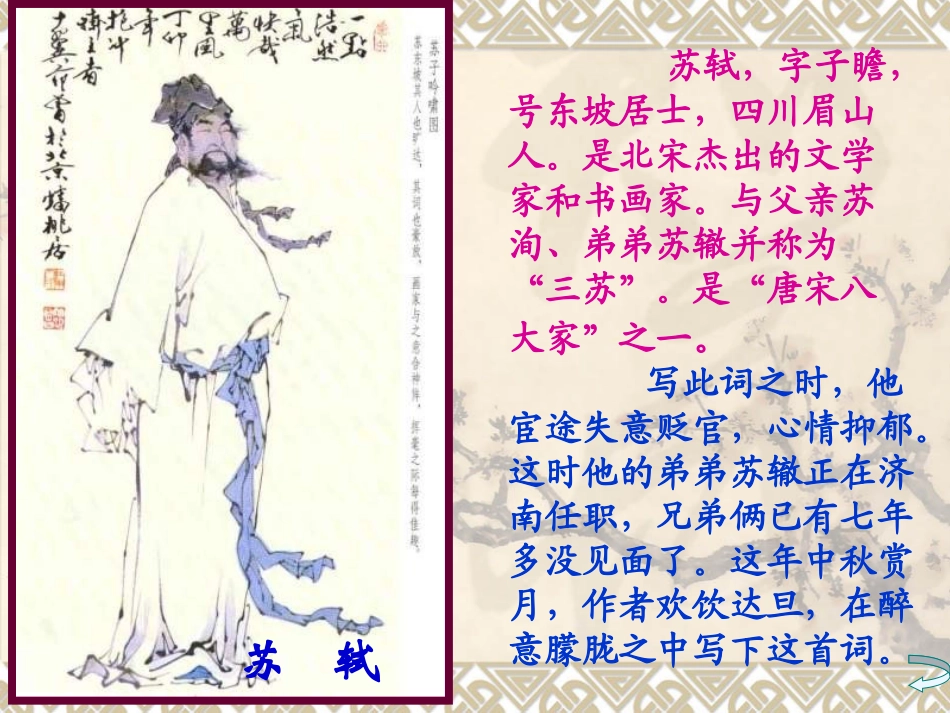 一點
浩然
氣
快哉
萬
里風
丁卯
年
抱冲
齋主者
十翼范曾於北京蟠桃居
苏子吟啸图
苏东坡其人也旷达，其词也豪放，画家与之意合神侔，挥毫之际每得佳趣。
苏 轼
苏轼，字子瞻，
号东坡居士，四川眉山
人。是北宋杰出的文学
家和书画家。与父亲苏
洵、弟弟苏辙并称为
“三苏”。是“唐宋八
大家”之一。
写此词之时，他
宦途失意贬官，心情抑郁。
这时他的弟弟苏辙正在济
南任职，兄弟俩已有七年
多没见面了。这年中秋赏
月，作者欢饮达旦，在醉
意朦胧之中写下这首词。